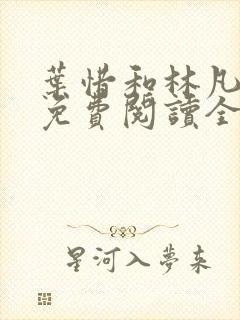 葉惜和林凡
免費閱讀全
星河入夢來